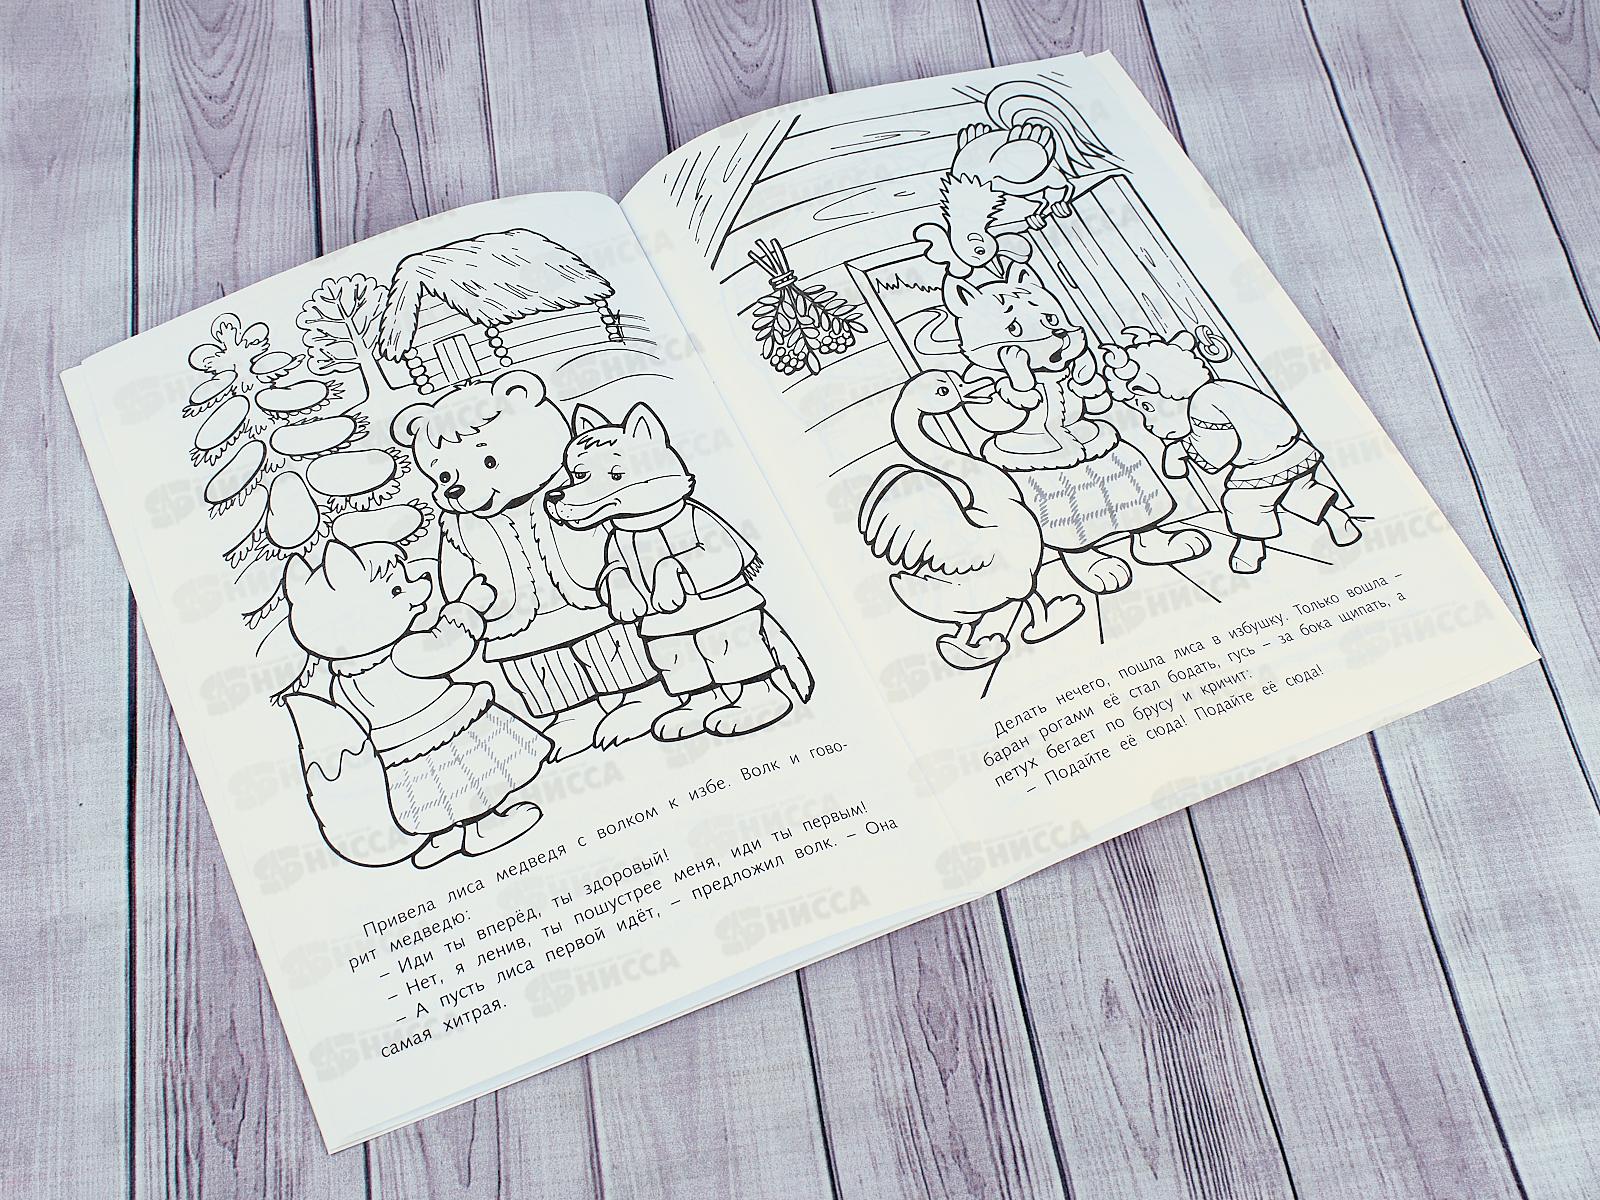 Привела лиса медведя с волком к избе. Волк и гово-
рит медведю:
– Иди ты вперёд, ты здоровый!
– Нет, я ленив, ты пошустрее меня, иди ты первым!
– А пусть лиса первой идёт, – предложил волк. – Она
самая хитрая.
Делать нечего, пошла лиса в избушку. Только вошла –
баран рогами её стал бодать, гусь – за бока щипать, а
петух бегает по брусу и кричит:
– Подайте её сюда! Подайте её сюда!
НИССА